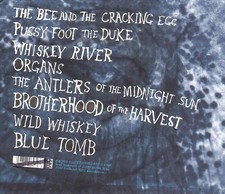 THE BEE AND THE CRACKING EGG
PUSSY FOOT THE DUKE
WHISKEY RIVER
ORGANS
THE ANTLERS OF THE MIDNIGHT SUN
BROTHERHOOD OF THE HARVEST
WILD WHISKEY
BLUE TOMB